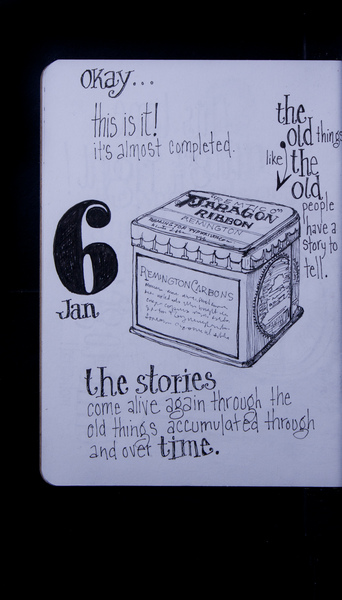 okay...
this is it!
it's almost completed.
the
old things
like
the
old
people
have a
story to
tell.
6
Jan
PARAGON
RIBBON
REMINGTON
REMINGTON CARBONS
the stories
come alive again through the
old things accumulated through
and over time.